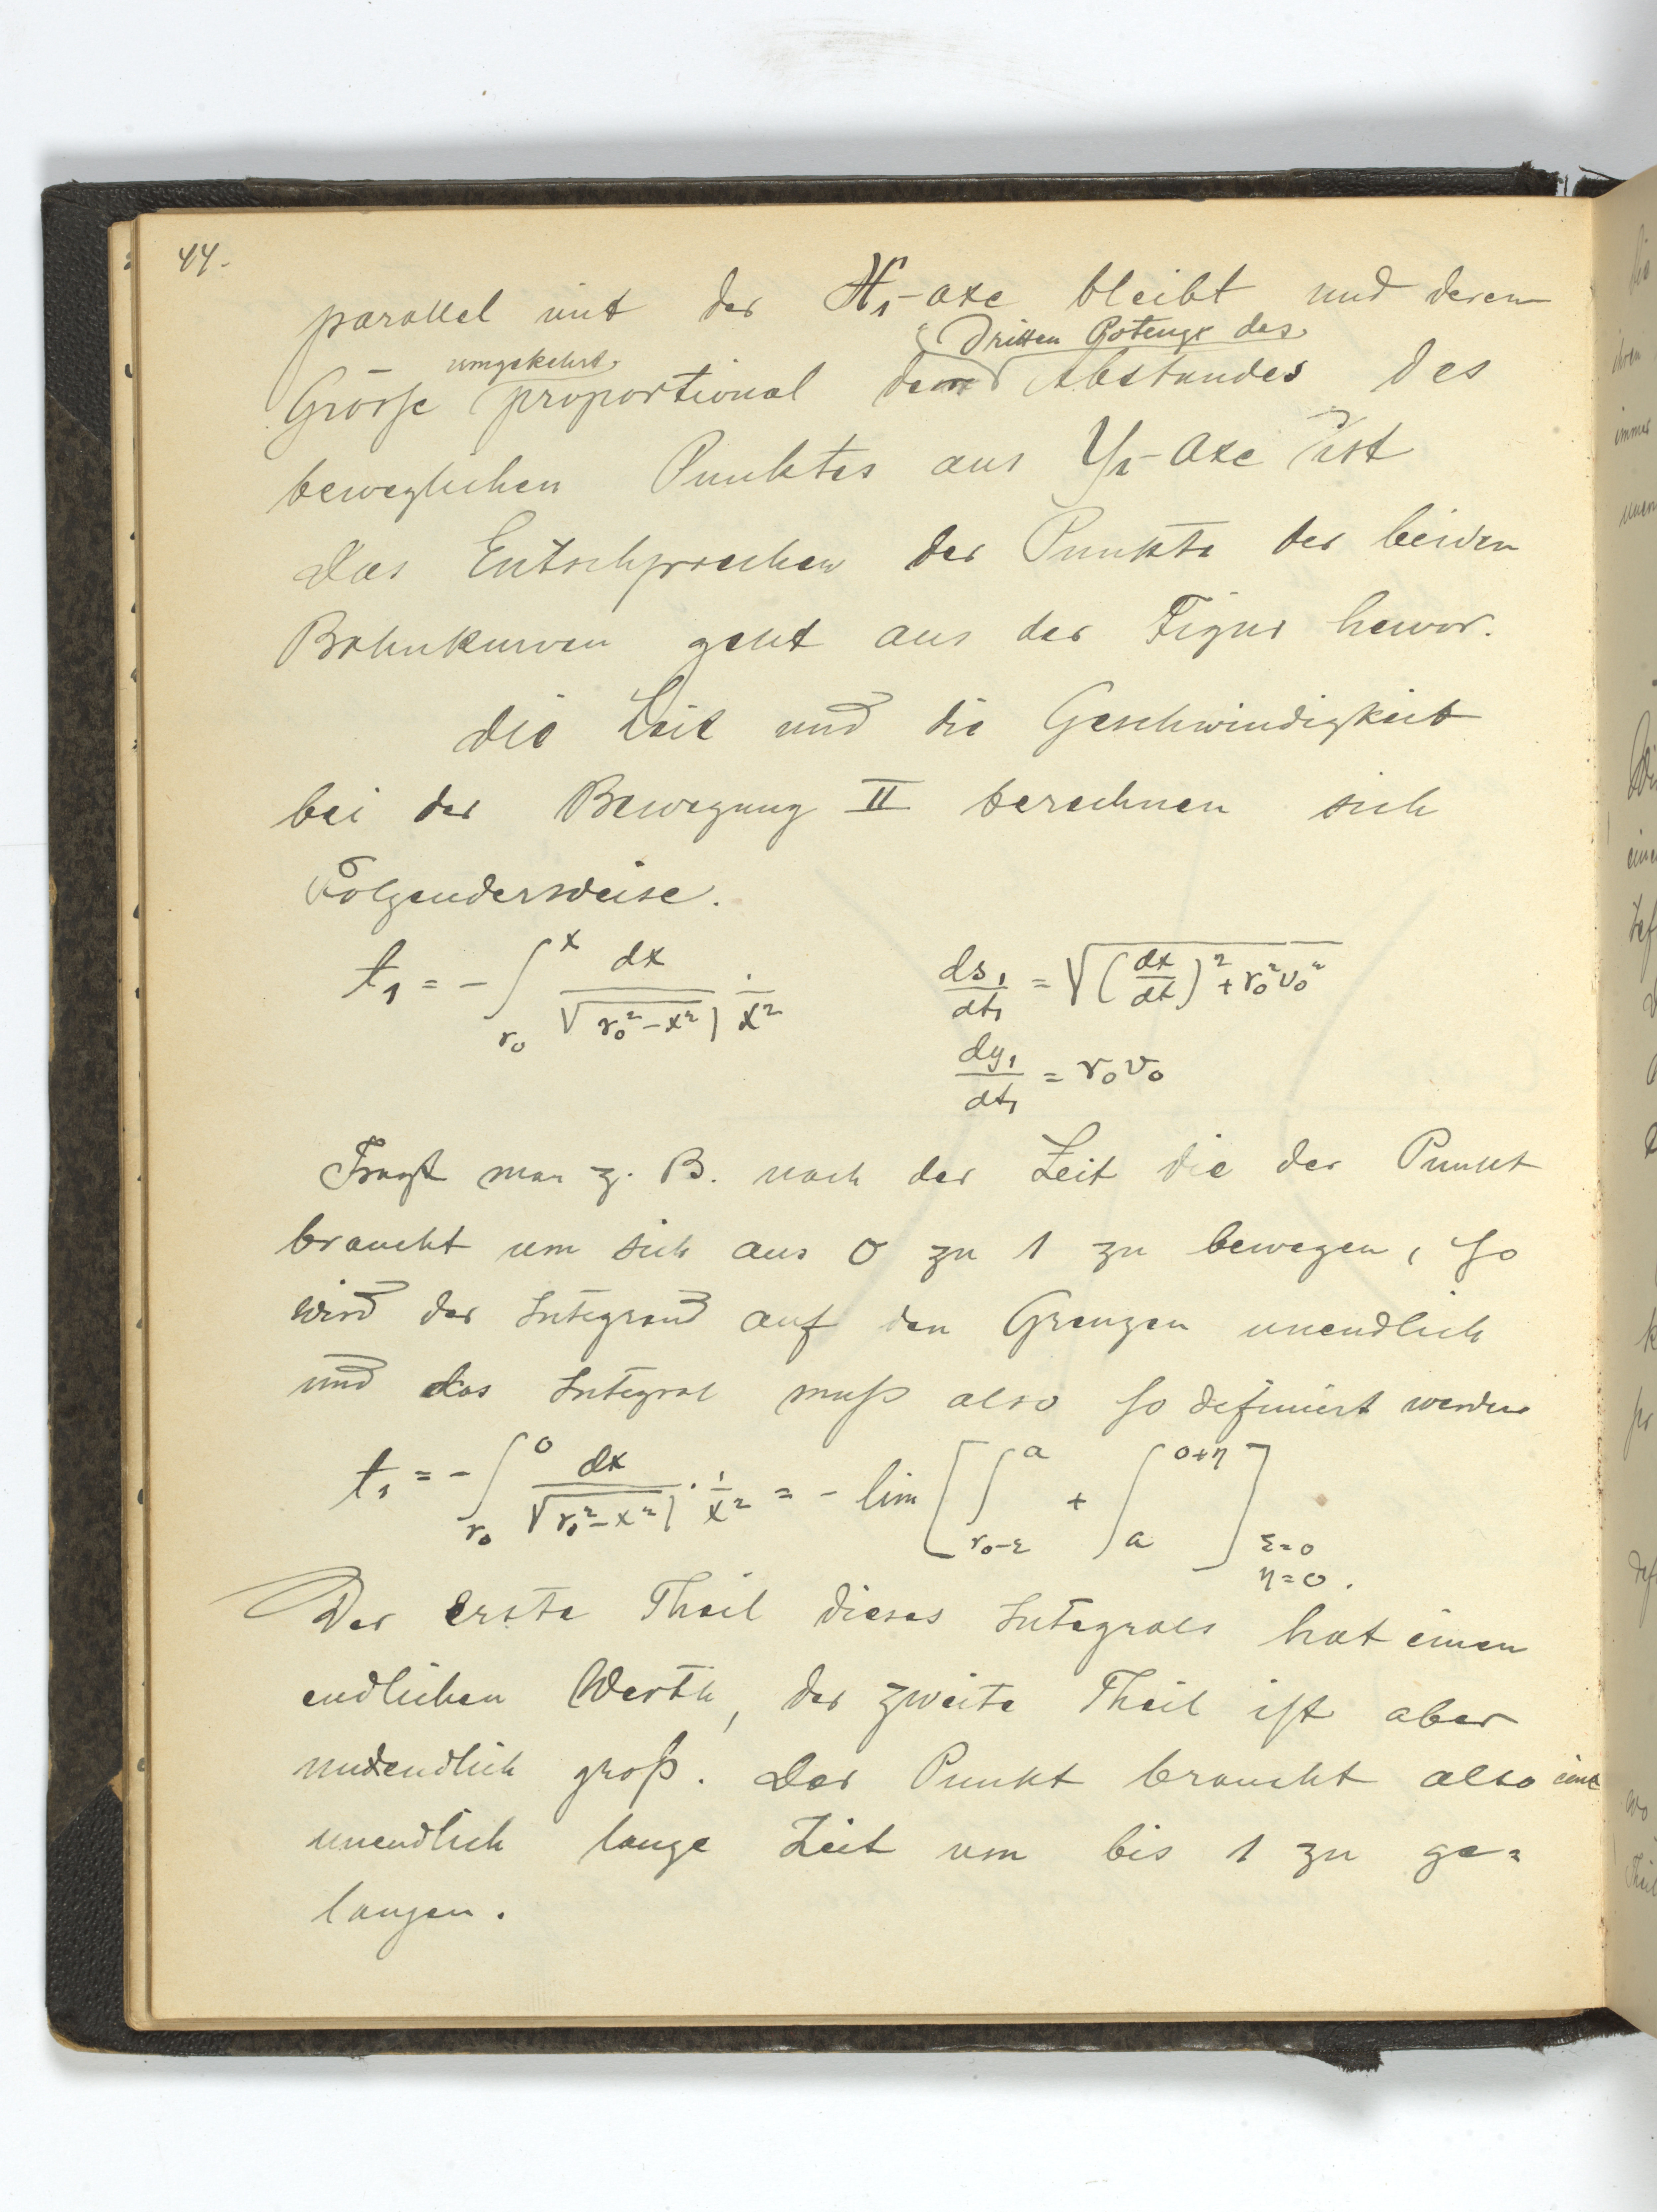 44.
parallel mit der X₁-axe bleibt und deren
umgekehrt dritten Potenz des
Grösse proportional der Abstandes des
beweglichen Punktes aus Y₁-Axe ist
Das Entschprechen der Punkte der beiden
Bahnkurven geht aus der Figur hervor.
Die Zeit und die Geschwindigkeit
bei der Bewegung II berechnen sich
Folgenderweise.
t₁ = - ∫_{r₀}^{x} dx/√(r₀²-x²) · 1/x² ds₁/dt₁ = √((dx/dt)² + r₀²v₀²)
dy₁/dt₁ = r₀v₀
Fragt man z. B. nach der Zeit die der Punkt
braucht um sich aus 0 zu 1 zu bewegen, so
wird der Integrand auf den Grenzen unendlich
und das Integral muß also so definiert werden
t₁ = - ∫_{r₀}^{0} dx/√(r₀²-x²) · 1/x² = - lim [∫_{r₀-ε}^{a} + ∫_{a}^{0+η}] ε=0
η=0.
Der erste Theil dieses Integrals hat einen
endlichen Werth, der zweite Theil ist aber
unendlich groß. Der Punkt braucht also eine
unendlich lange Zeit um bis 1 zu ge=
langen.